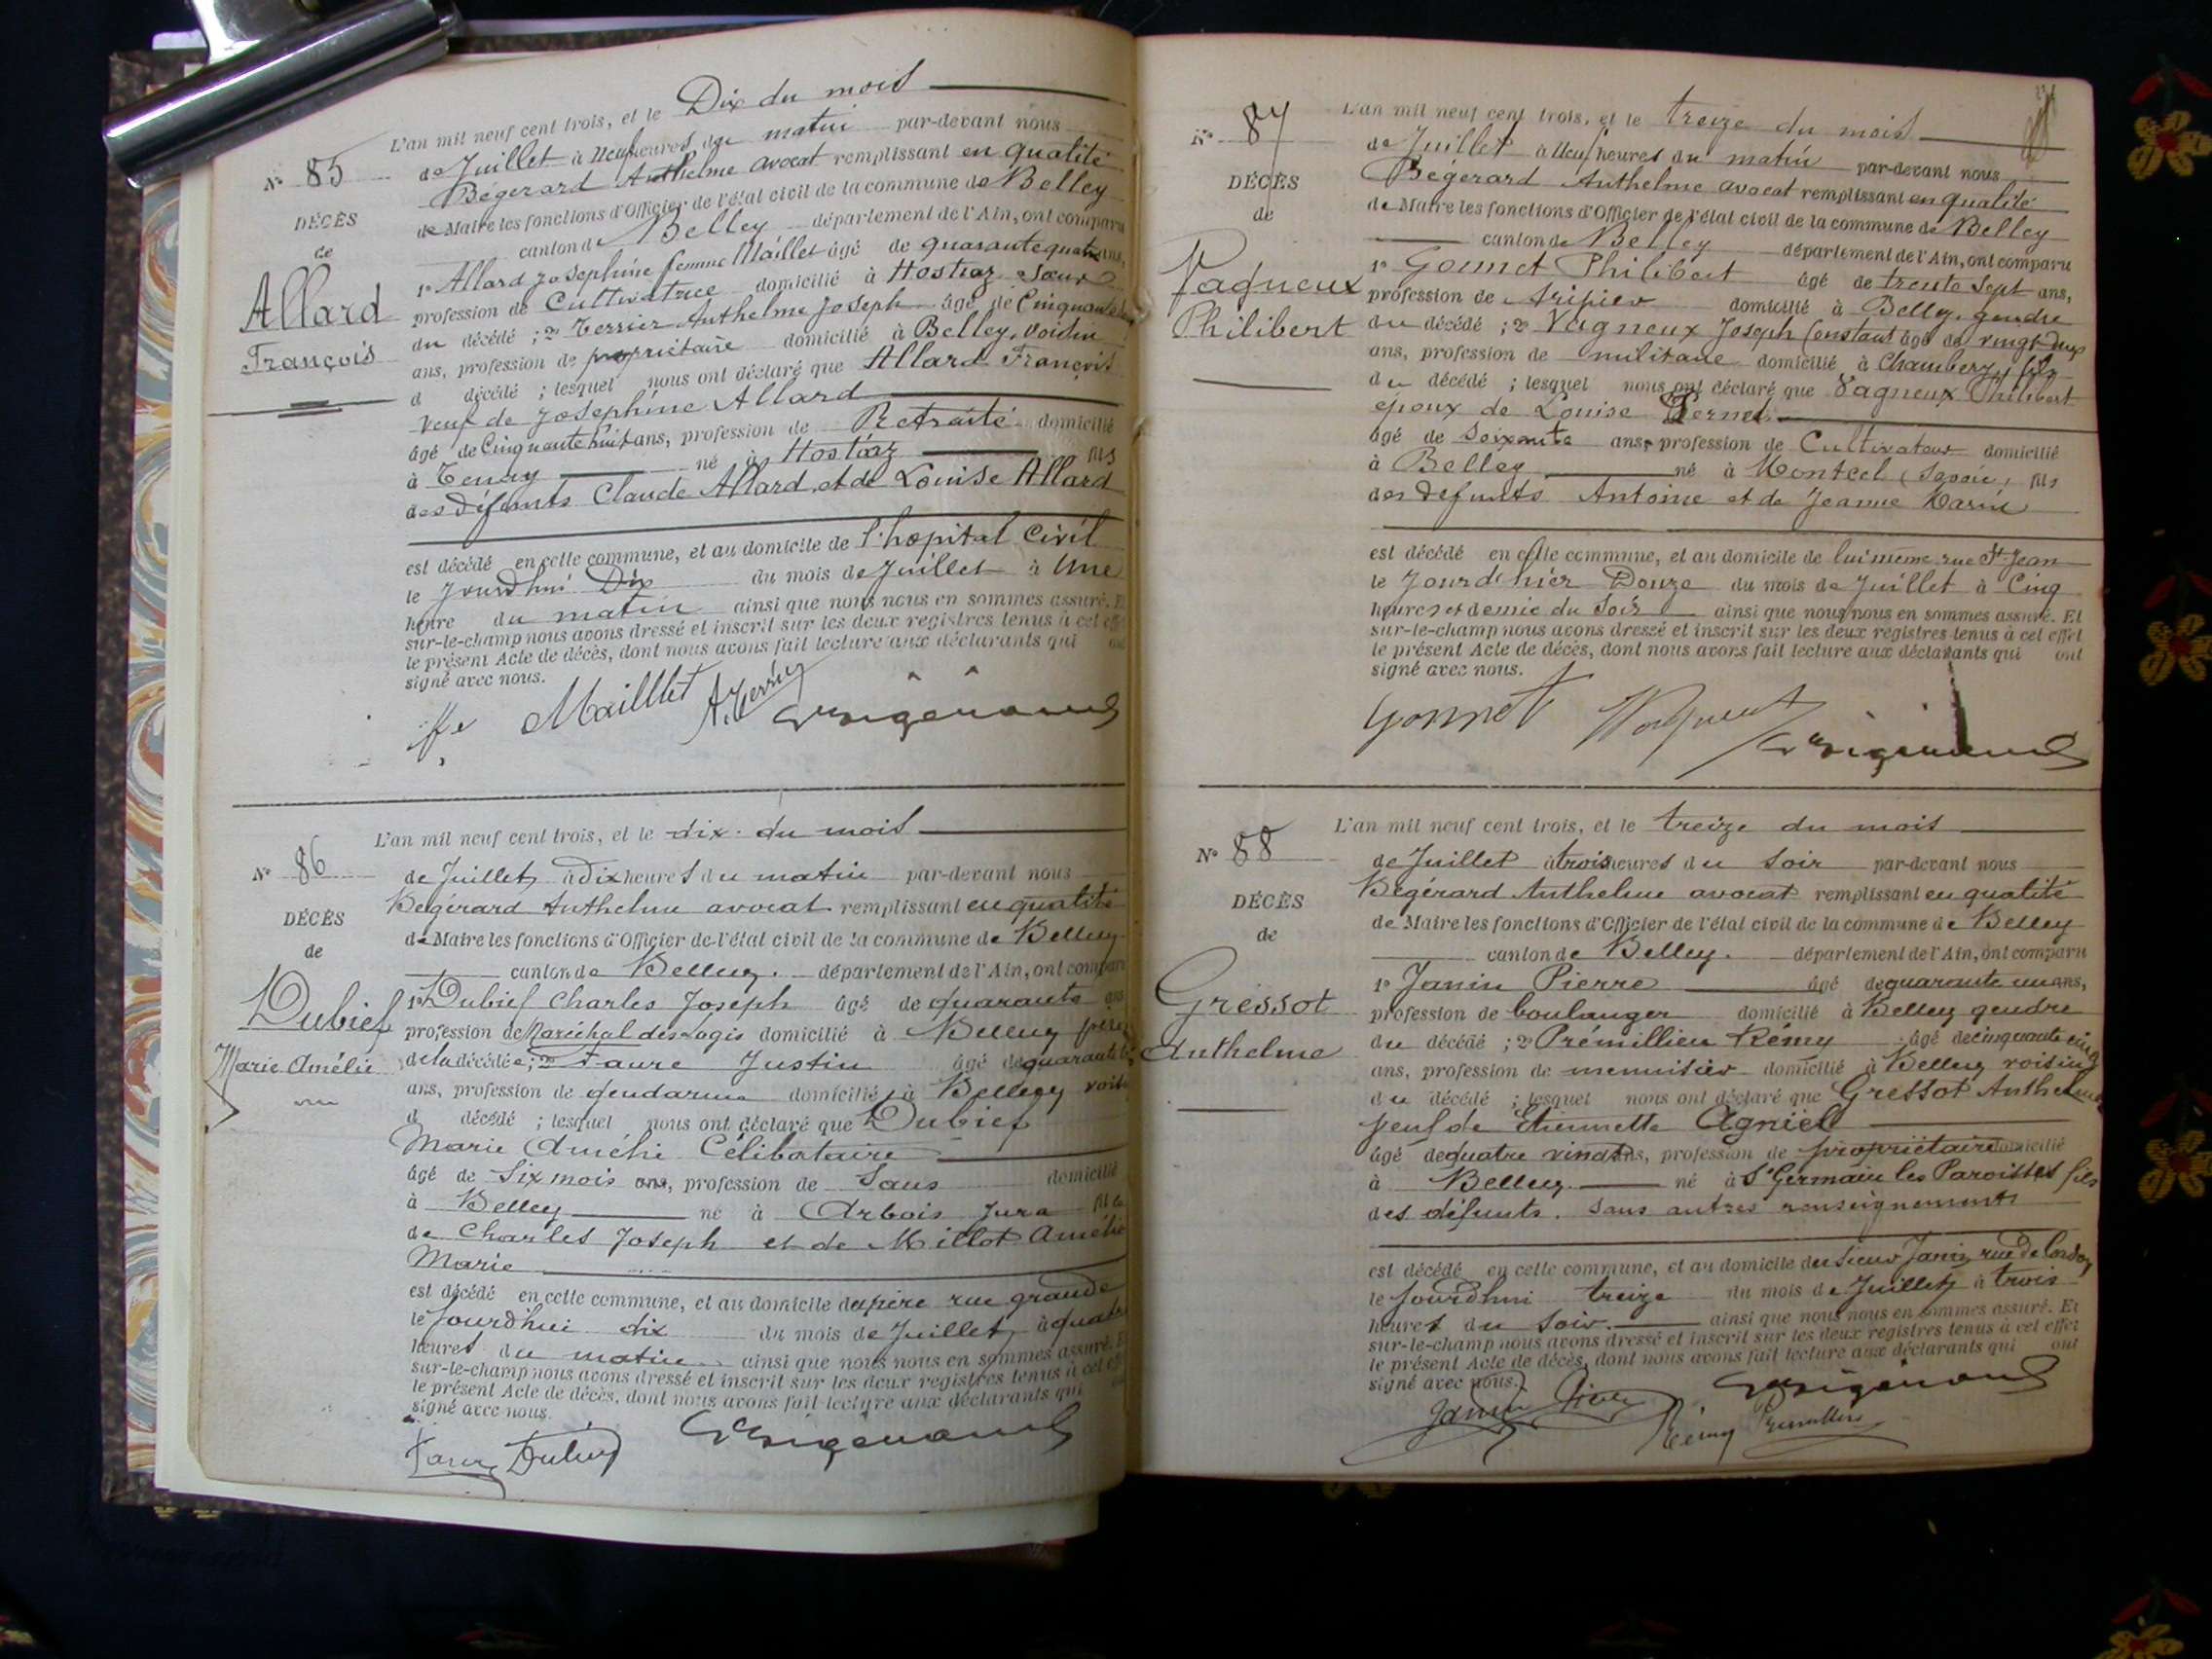 N° 85
DÉCÈS
de
Allard
François
L'an mil neuf cent trois, et le Dix du mois
de Juillet à Neuf heures du matin par-devant nous
Bégerard Anthelme avocat remplissant en qualité
de Maire les fonctions d'Officier de l'état civil de la commune de Belley
canton de Belley département de l'Ain, ont comparu
1° Allard Josephine femme Maillet âgé de quarante quatre ans,
profession de Cultivatrice domicilié à Hostiaz soeur
du décédé ; 2° Terrier Anthelme Joseph âgé de Cinquante
ans, profession de propriétaire domicilié à Belley, voisin
d décédé ; lesquel nous ont déclaré que Allard François
veuf de Josephine Allard
âgé de Cinquante huit ans, profession de Retraité domicilié
à Tenay né à Hostiaz fils
des défunts Claude Allard et de Louise Allard
est décédé en cette commune, et au domicile de l'hopital Civil
le Jourdhui Dix du mois de Juillet à Une
heure du matin ainsi que nous nous en sommes assuré. Et
sur-le-champ nous avons dressé et inscrit sur les deux registres tenus à cet effet
le présent Acte de décès, dont nous avons fait lecture aux déclarants qui ont
signé avec nous.
Maillet A. Terrier
N° 86
DÉCÈS
de
Dubief
Marie Amélie
L'an mil neuf cent trois, et le dix du mois
de Juillet à Dix heures du matin par-devant nous
Bégérard Anthelme avocat remplissant en qualité
de Maire les fonctions d'Officier de l'état civil de la commune de Belley
canton de Belley. département de l'Ain, ont comparu
1° Dubief Charles Joseph âgé de quarante ans
profession de Maréchal des Logis domicilié à Belley père
de la décédée ; 2° Faure Justin âgé de quarante
ans, profession de gendarme domicilié à Belley voisin
d décédé ; lesquel nous ont déclaré que Dubief
Marie Amélie Célibataire
âgé de Six mois ans, profession de Sans domicilié
à Belley né à Arbois Jura fille
de Charles Joseph et de Millot Amélie
Marie
est décédé en cette commune, et au domicile du père rue grande
le Jourdhui dix du mois de Juillet à quatre
heures du matin ainsi que nous nous en sommes assuré. Et
sur-le-champ nous avons dressé et inscrit sur les deux registres tenus à cet effet
le présent Acte de décès, dont nous avons fait lecture aux déclarants qui
signé avec nous.
Faure Dubief
N° 87
DÉCÈS
de
Vagneux
Philibert
L'an mil neuf cent trois, et le treize du mois
de Juillet à Neuf heures du matin par-devant nous
Bégerard Anthelme avocat remplissant en qualité
de Maire les fonctions d'Officier de l'état civil de la commune de Belley
canton de Belley département de l'Ain, ont comparu
1° Gonnet Philibert âgé de trente sept ans,
profession de tripier domicilié à Belley, gendre
du décédé ; 2° Vagneux Joseph Constant âgé de vingt deux
ans, profession de militaire domicilié à Chambery fils
du décédé ; lesquel nous ont déclaré que Vagneux Philibert
époux de Louise Pernet
âgé de soixante ans, profession de Cultivateur domicilié
à Belley né à Montcel (Savoie) fils
des défunts Antoine et de Jeanne Marin
est décédé en cette commune, et au domicile de lui même rue St Jean
le Jourd'hier Douze du mois de Juillet à Cinq
heures et demie du soir ainsi que nous nous en sommes assuré. Et
sur-le-champ nous avons dressé et inscrit sur les deux registres tenus à cet effet
le présent Acte de décès, dont nous avons fait lecture aux déclarants qui ont
signé avec nous.
Gonnet Vagneux
N° 88
DÉCÈS
de
Gressot
Anthelme
L'an mil neuf cent trois, et le treize du mois
de Juillet à trois heures du soir par-devant nous
Bégérard Anthelme avocat remplissant en qualité
de Maire les fonctions d'Officier de l'état civil de la commune de Belley
canton de Belley. département de l'Ain, ont comparu
1° Janin Pierre âgé de quarante un ans,
profession de boulanger domicilié à Belley gendre
du décédé ; 2° Prémillieu Rémy âgé de cinquante cinq
ans, profession de menuisier domicilié à Belley voisin
du décédé ; lesquel nous ont déclaré que Gressot Anthelme
veuf de Etiennette Agniel
âgé de quatre vingt ans, profession de propriétaire domicilié
à Belley né à St Germain les Paroisses fils
des défunts. sans autres renseignements
est décédé en cette commune, et au domicile du sieur Janin rue de Cordon
le Jourdhui treize du mois de Juillet à trois
heures du soir. ainsi que nous nous en sommes assuré. Et
sur-le-champ nous avons dressé et inscrit sur les deux registres tenus à cet effet
le présent Acte de décès, dont nous avons fait lecture aux déclarants qui ont
signé avec nous.
Janin Pierre
Rémy Prémillieu